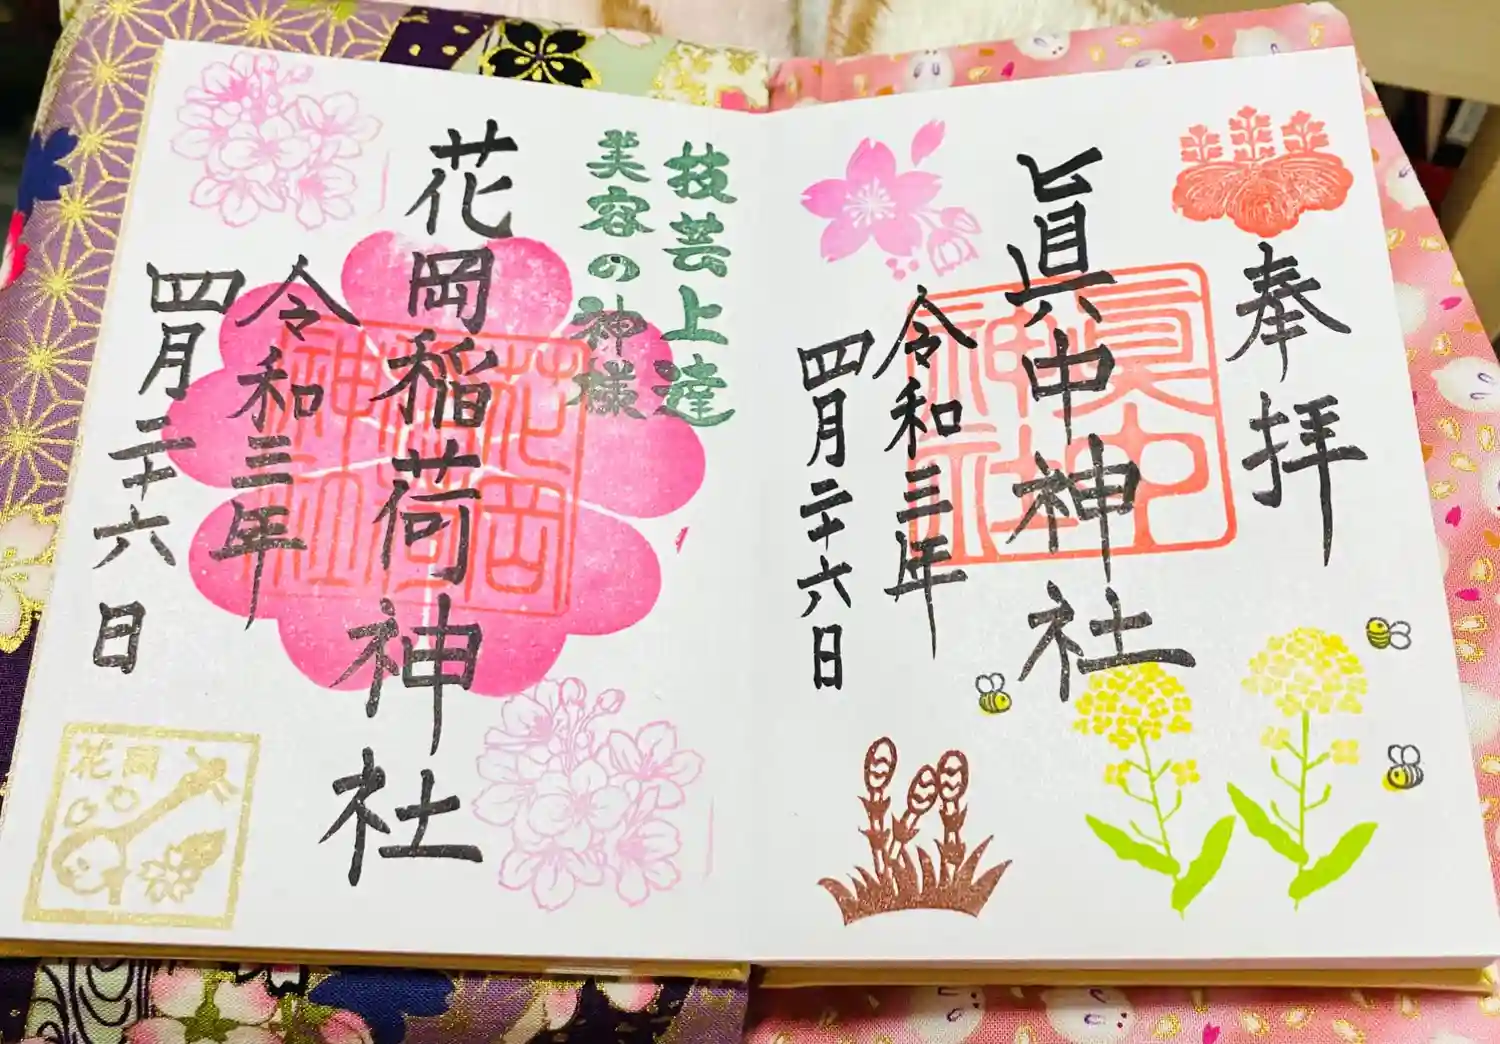 奉拝
眞中神社
眞中
神社
令和三年
四月二十六日
技芸上達
美容の神様
花岡稲荷神社
花岡
稲荷
神社
令和三年
四月二十六日
花岡